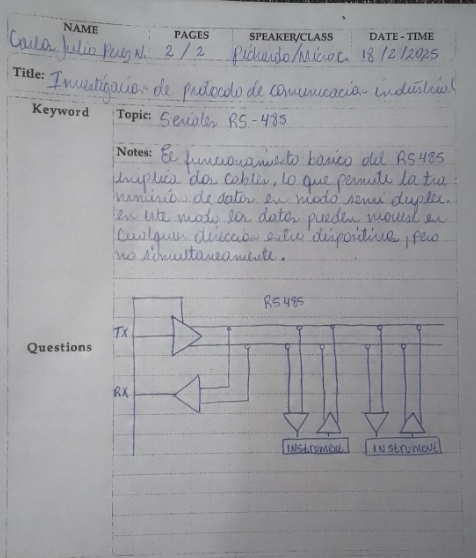 NAME PAGES SPEAKER/CLASS DATE - TIME
Carlos Julio Perez N. 2 / 2 Pichardo/Microc. 18 / 2 / 2025
Title: Investigacion de protocolo de comunicacion industrial
Keyword
Topic: Seriales RS-485
Notes: El funcionamiento basico del RS485
implica dos cables, lo que permite la tra
nsmision de datos en modo semi duplex.
en este modo los datos pueden moverse en
cualquier direccion entre dispositivos, pero
no simultaneamente.
RS485
TX
Questions
RX
INSTRUMENT INSTRUMENT